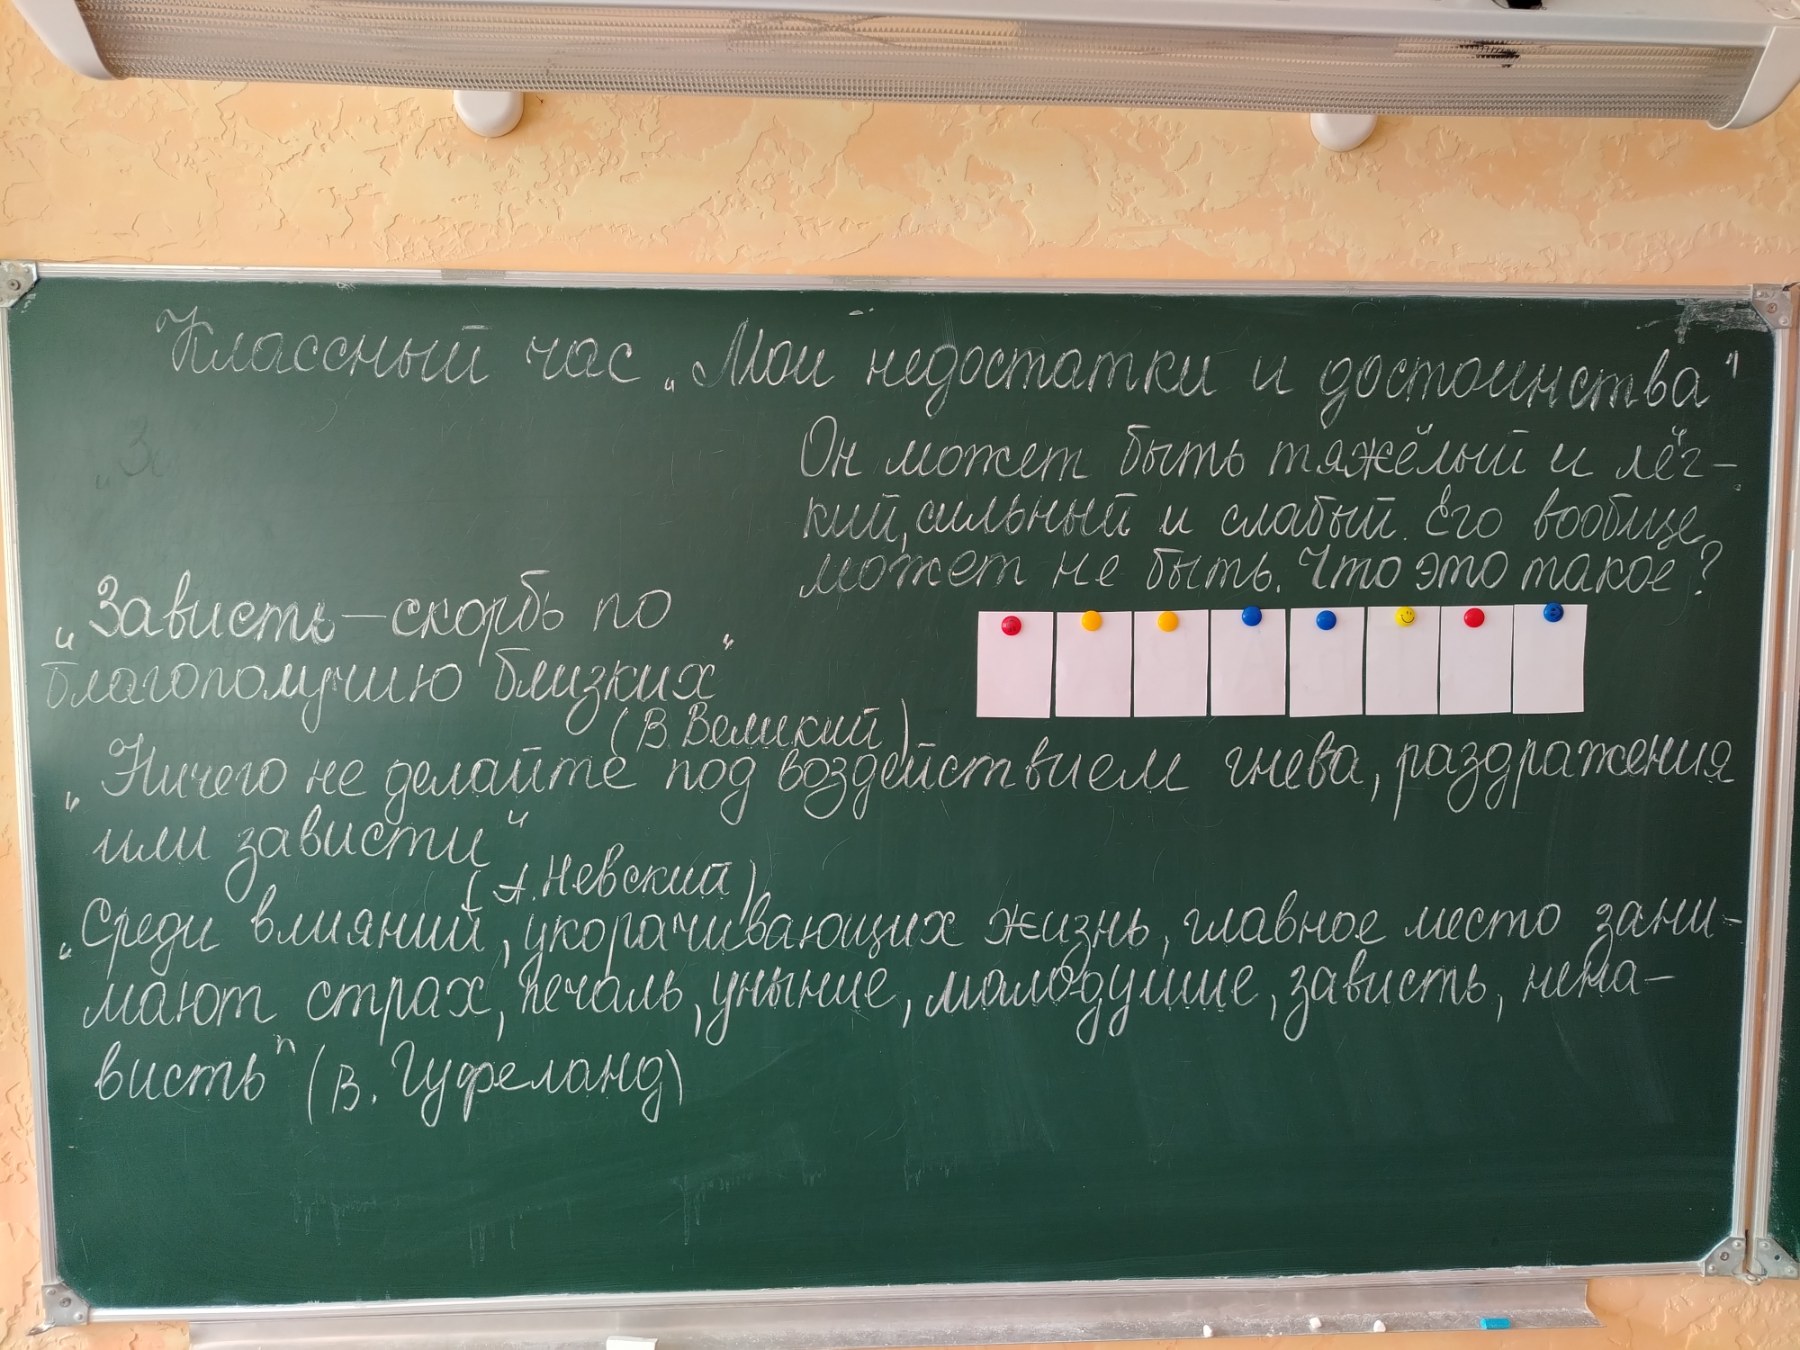 Классный час „Мои недостатки и достоинства"
Он может быть тяжёлый и лёг-
кий, сильный и слабый. Его вообще
может не быть. Что это такое?
„Зависть – скорбь по
благополучию близких"
(В. Великий)
„Ничего не делайте под воздействием гнева, раздражения
или зависти"
(А. Невский)
„Среди влияний, укорачивающих жизнь, главное место зани-
мают страх, печаль, уныние, малодушие, зависть, нена-
висть" (В. Гуфеланд)